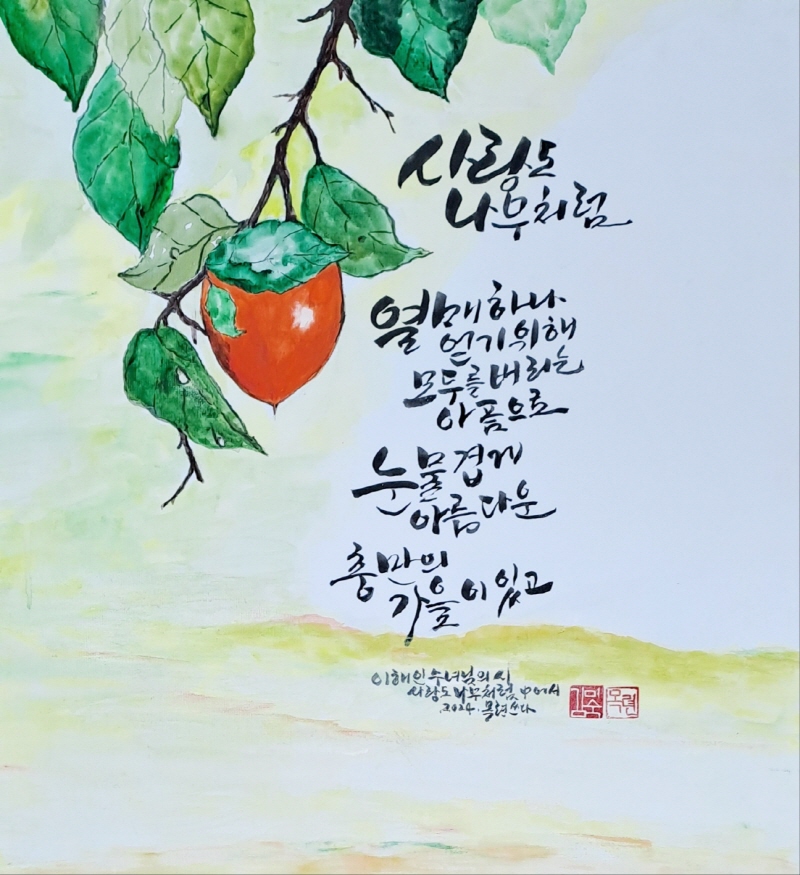 사랑도
나무처럼
열매 하나
얻기 위해
모두를 버리는
아픔으로
눈물겹게
아름다운
충만의
가을이 있고
이해인 수녀님의 시
사랑도 나무처럼 中에서
2024. 목련 쓰다
목련